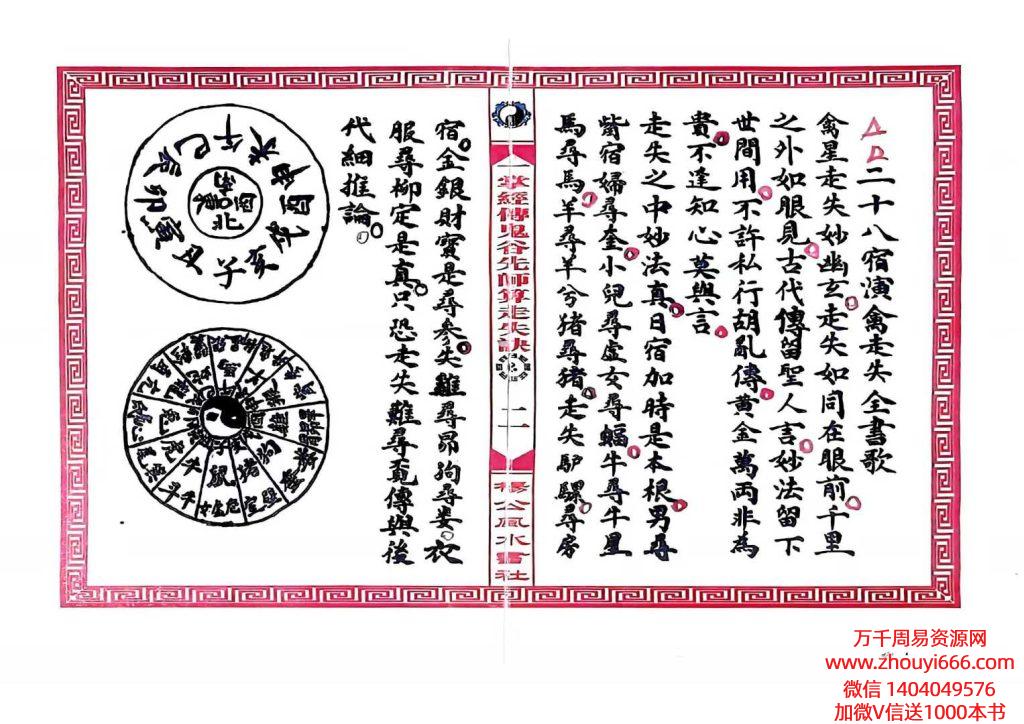 二十八宿演禽走失全書歌
禽星走失妙幽玄走失如同在眼前千里
之外如眼見古代傳留聖人言妙法留下
世間用不許私行胡亂傳黃金萬兩非為
貴不逢知心莫與言
走失之中妙法真日宿加時是本根男尋
觜宿婦尋奎小兒尋虛女尋蝠牛尋牛星
馬尋馬羊尋羊兮猪尋猪走失馿騾尋房
掌經傳鬼谷先師算走失訣
二一
楊公風水書社
宿金銀財寶是尋參失雞尋昴狗尋婁衣
服尋柳定是真只恐走失難尋覓傳與後
代細推論
午
巳
辰
卯
寅
丑
子
亥
戌
酉
申
未
北
鼠
猪
狗
雞
牛
虎
斗
牛
女
危
室
壁
万千周易资源网
www.zhouyi666.com
微信 1404049576
加微V信送1000本书